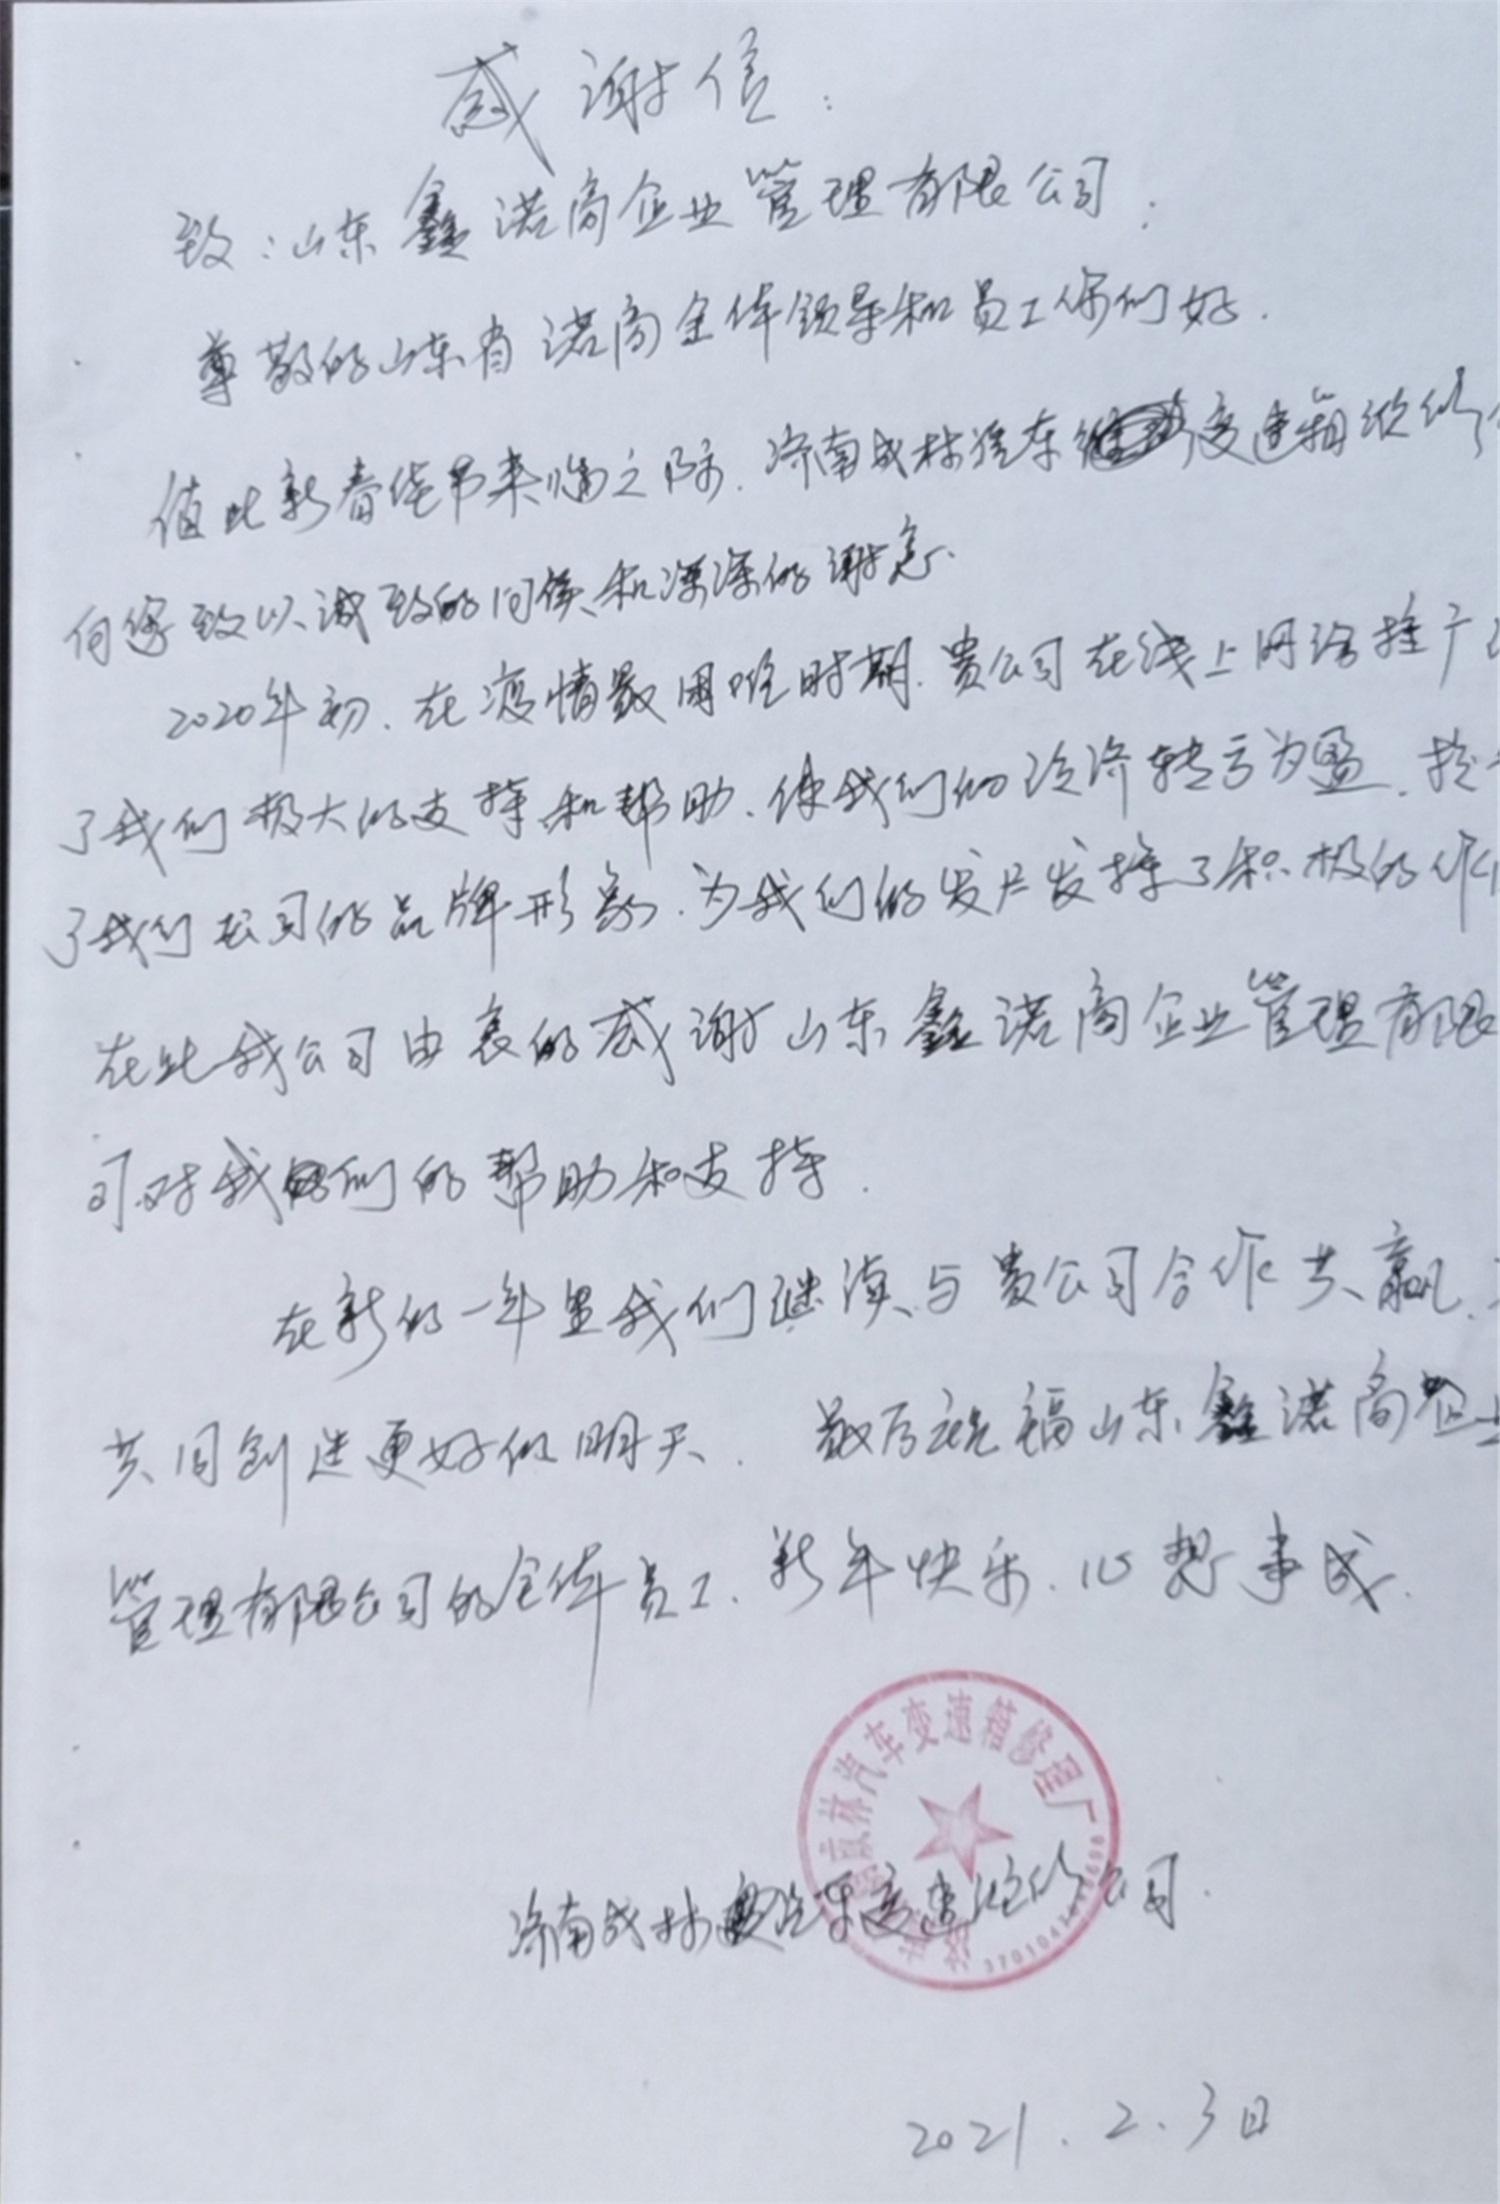 感谢信:
致:山东鑫诺商企业管理有限公司:
尊敬的山东省诺商全体领导和员工你们好.
值此新春佳节来临之际.济南成林汽车变速箱维修
向您致以诚致的问侯和深深的谢意.
2020年初.在疫情最困难时期.贵公司在线上网络推广
了我们极大的支持和帮助.使我们的经济转亏为盈.
了我们公司的品牌形象.为我们的发展发挥了积极的作用
在此我公司由衷的感谢山东鑫诺商企业管理有限
司对我们的帮助和支持.
在新的一年里我们继续与贵公司合作共赢.
共同创造更好的明天. 最后祝福山东鑫诺商企业
管理有限公司的全体员工.新年快乐.心想事成.
林汽车变速箱修理厂
济南成林汽车变速 公司.
2021.2.3日